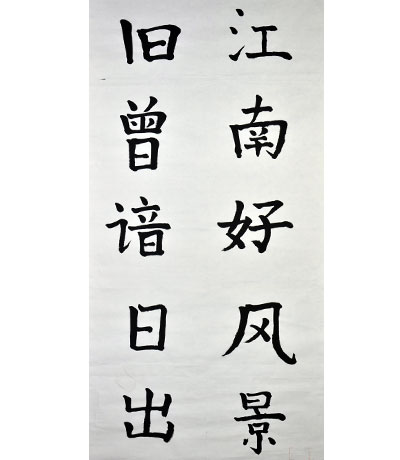 江南好风景
旧曾谙日出